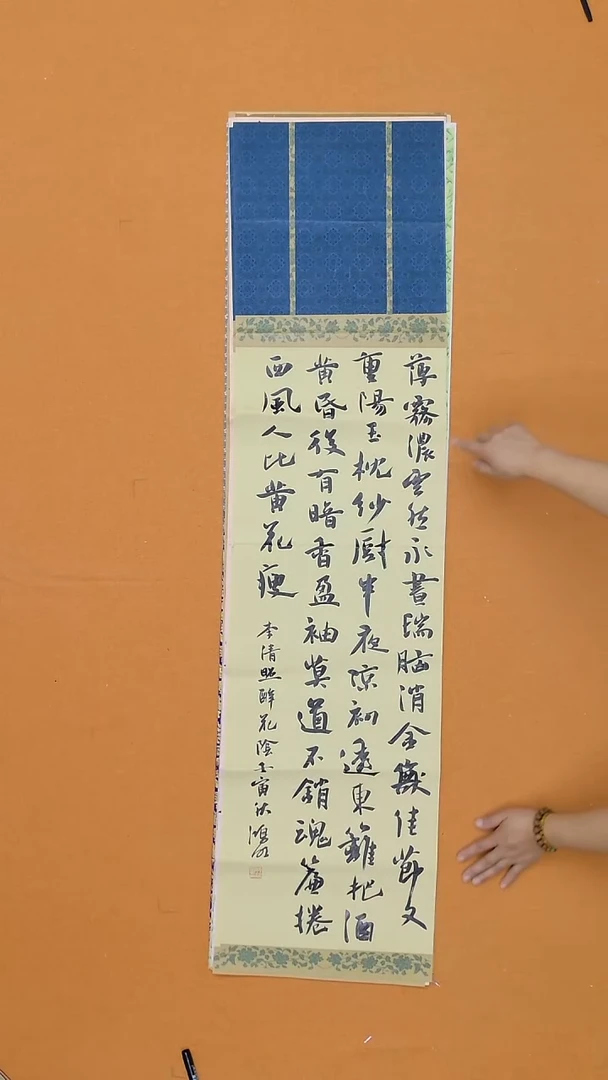 薄霧濃雲愁永晝瑞腦消金獸佳節又
重陽玉枕紗厨半夜涼初透東籬把酒
黄昏後有暗香盈袖莫道不銷魂簾捲
西風人比黄花瘦
李清照醉花陰壬寅秋